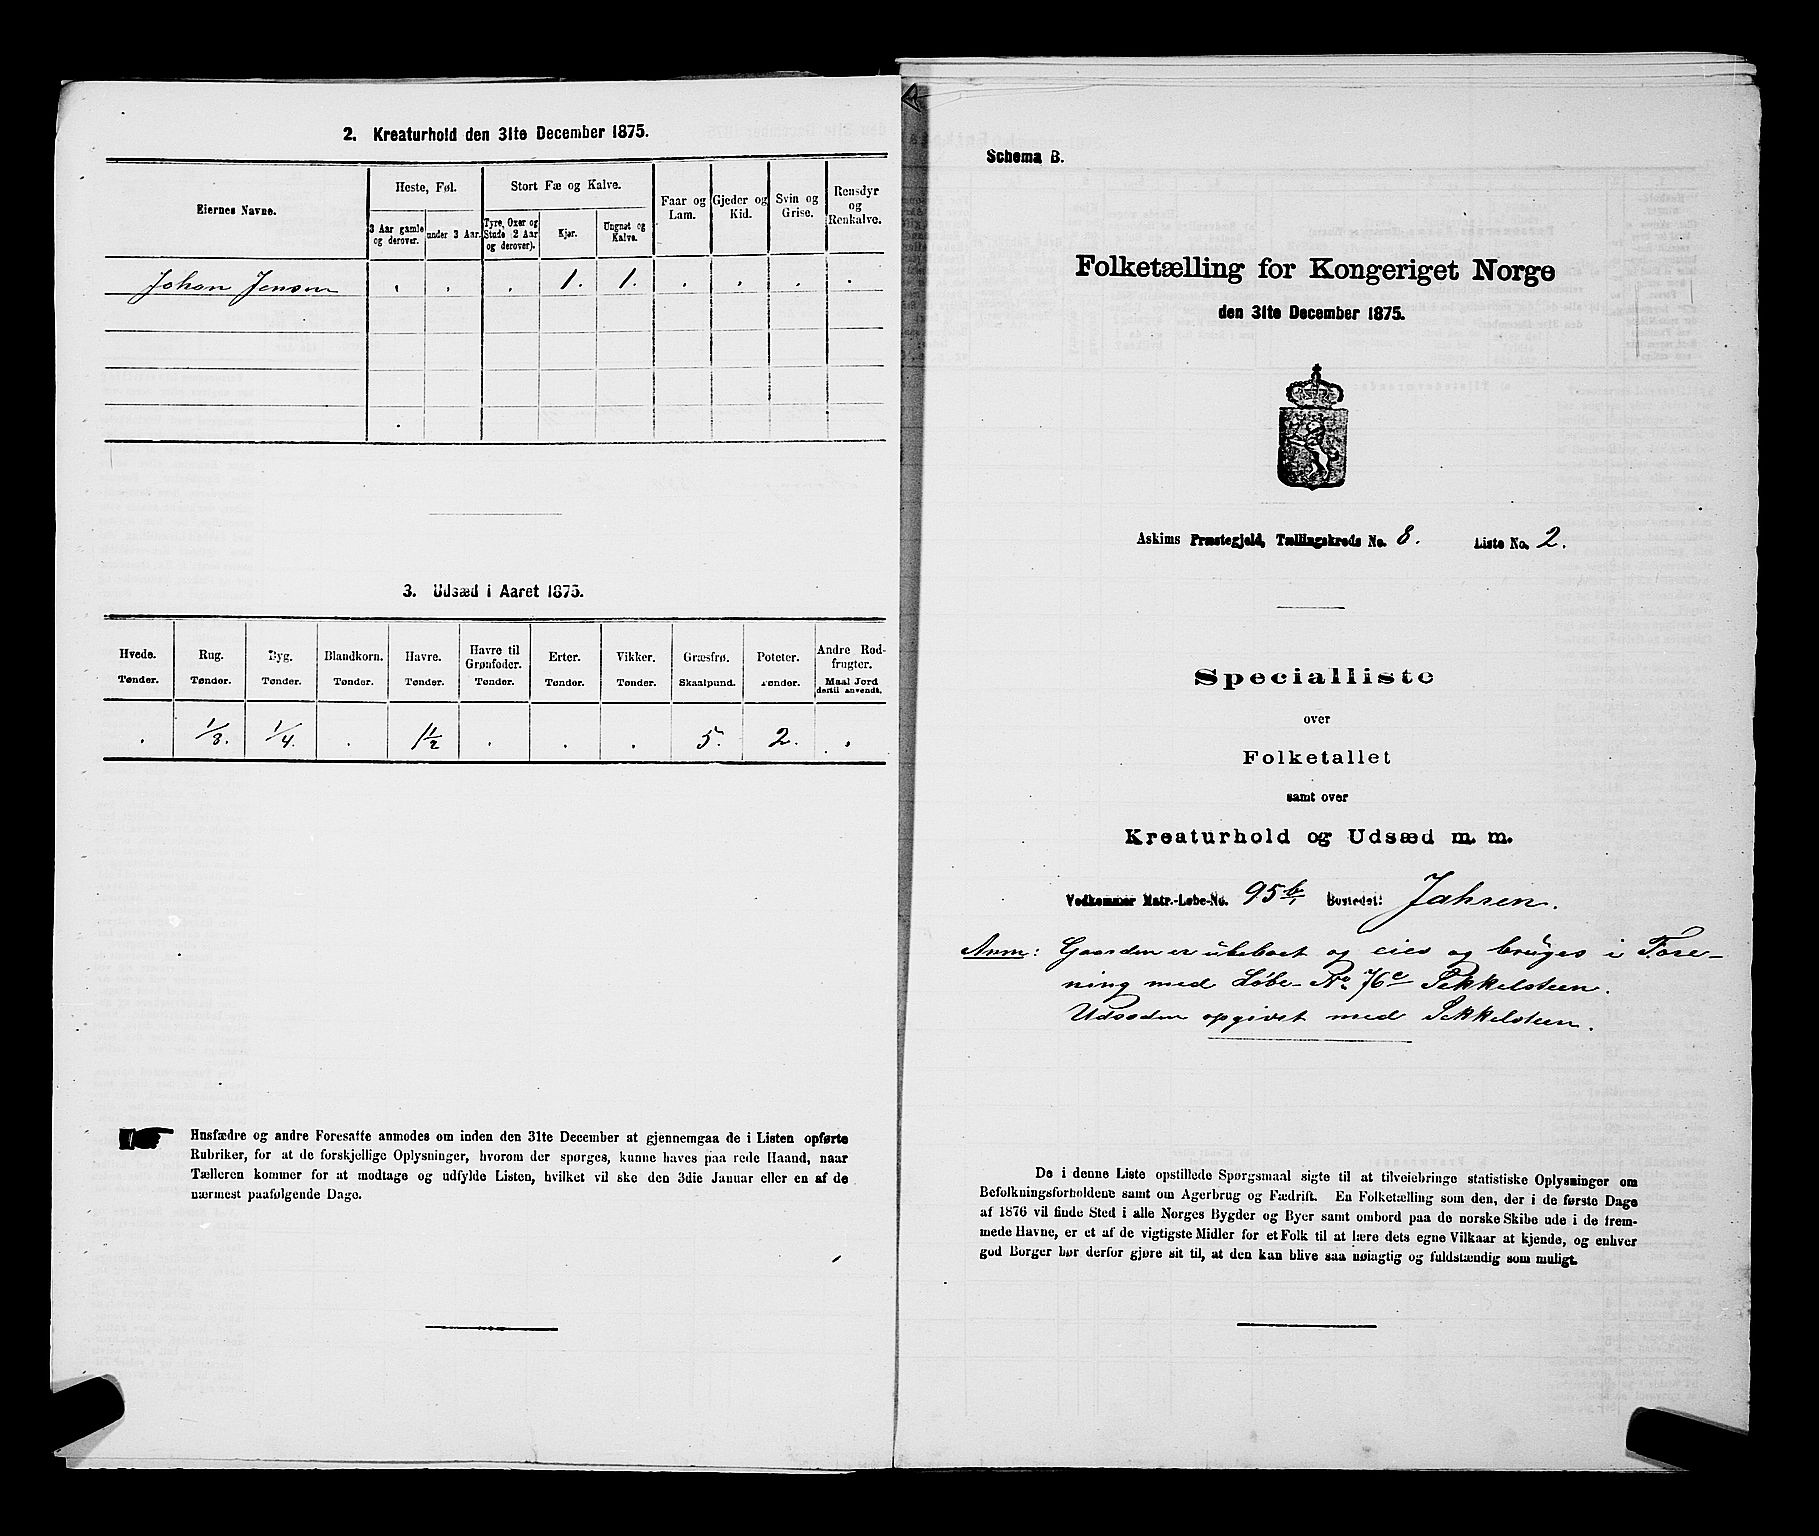 2. Kreaturhold den 31te December 1875.
Eiernes Navne.
Heste, Føl.
Stort Fæ og Kalve.
Faar og Lam.
Gjeder og Kid.
Svin og Grise.
Rensdyr og Renkalve.
3 Aar gamle og derover.
under 3 Aar.
Tyre, Oxer og Stude 2 Aar og derover).
Kjør.
Ungnøt og Kalve.
Johan Jensen . . . 1. 1. . . . .
3. Udsæd i Aaret 1875.
Hvede. Rug. Byg. Blandkorn. Havre. Havre til Grønfoder. Erter. Vikker. Græsfrø. Poteter. Andre Rodfrugter.
Tønder. Tønder. Tønder. Tønder. Tønder. Tønder. Tønder. Tønder. Skaalpund. Tønder. Maal Jord dertil anvendt.
. 1/8. 1/4. . 1 1/2 . . . 5. 2. .
Husfædre og andre Foresatte anmodes om inden den 31te December at gjennemgaa de i Listen opførte
Rubriker, for at de forskjellige Oplysninger, hvorom der spørges, kunne haves paa rede Haand, naar
Tælleren kommer for at modtage og udfylde Listen, hvilket vil ske den 3die Januar eller en af de
nærmest paafølgende Dage.
Schema B.
Folketælling for Kongeriget Norge
den 31te December 1875.
Askims Præstegjeld, Tællingskreds No. 8. Liste No. 2.
Specialliste
over
Folketallet
samt over
Kreaturhold og Udsæd m. m.
Vedkommer Matr.-Løbe-No. 95b, Bostedet: Jahren.
Anm: Gaarden er ubeboet og eies og bruges i Fore-
ning med Løbe-No. 76c Sekkelsteen.
Udsæden opgivet med Sekkelsteen.
De i denne Liste opstillede Spørgsmaal sigte til at tilveiebringe statistiske Oplysninger om
Befolkningsforholdene samt om Agerbrug og Fædrift. En Folketælling som den, der i de første Dage
af 1876 vil finde Sted i alle Norges Bygder og Byer samt ombord paa de norske Skibe ude i de frem-
mede Havne, er et af de vigtigste Midler for et Folk til at lære dets egne Vilkaar at kjende, og enhver
god Borger bør derfor gjøre sit til, at den kan blive saa nøiagtig og fuldstændig som muligt.